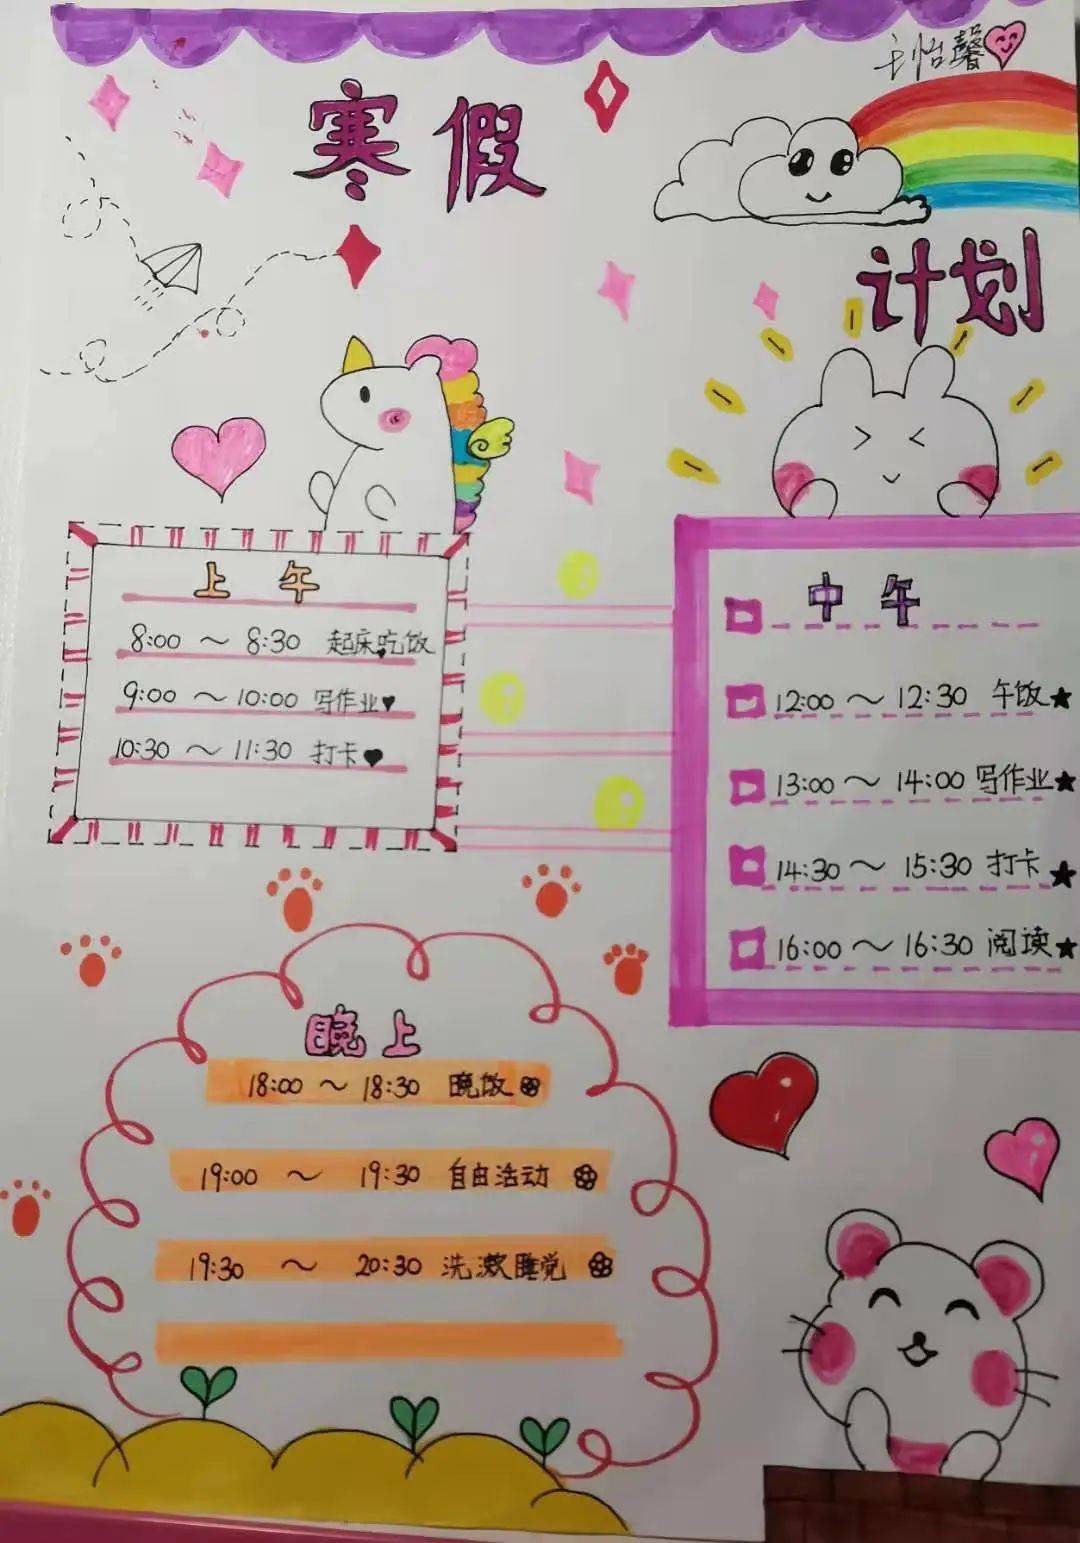 怡馨
寒假
计划
上午
8:00 ～ 8:30 起床吃饭
9:00 ～ 10:00 写作业
10:30 ～ 11:30 打卡
中午
12:00 ～ 12:30 午饭
13:00 ～ 14:00 写作业
14:30 ～ 15:30 打卡
16:00 ～ 16:30 阅读
晚上
18:00 ～ 18:30 晚饭
19:00 ～ 19:30 自由活动
19:30 ～ 20:30 洗漱睡觉